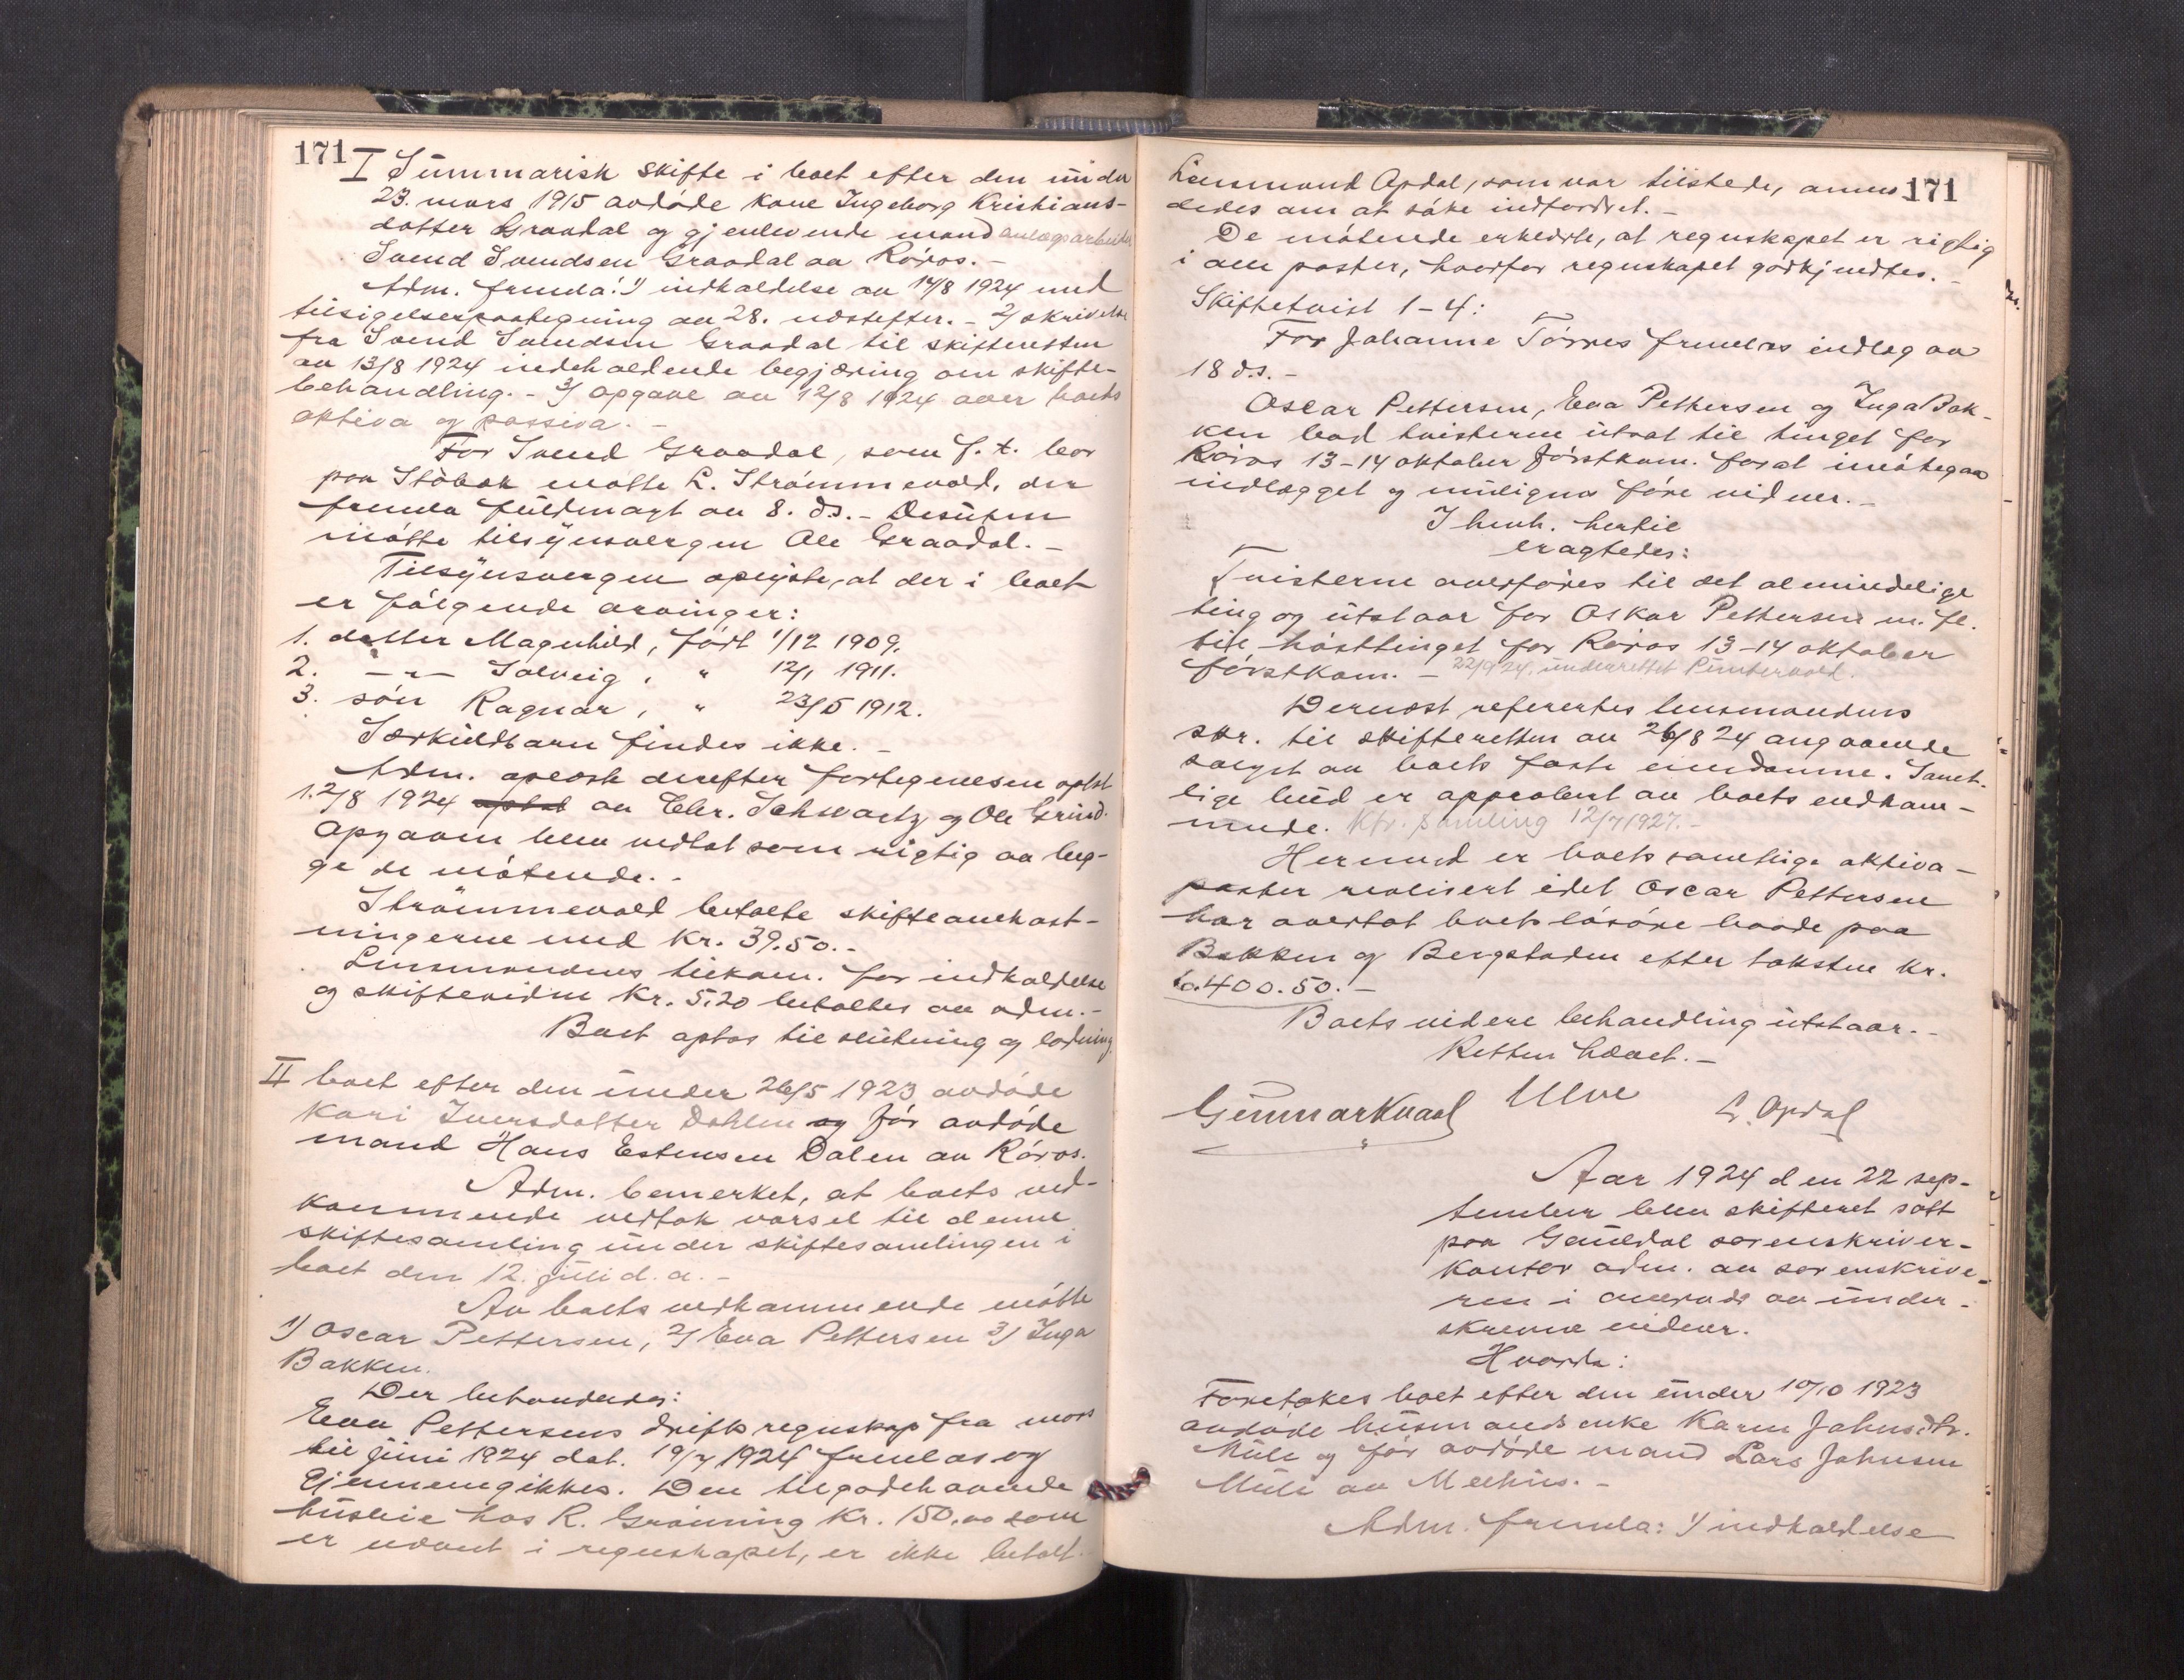 171
I Summarisk skifte i boet efter den under
23. mars 1915 avdøde kone Ingeborg Kristians-
datter Graadal og gjenlevende mand anlægsarbeider
Svend Svendsen Graadal av Röros. -
Adm. fremla: 1/ indkaldelse av 14/8 1924 med
tilsigelsespaategning av 28. næstefter. - 2/ skrivelse
fra Svend Svendsen Graadal til skifteretten
av 13/8 1924 indeholdende begjæring om skifte-
behandling. - 3/ opgave av 12/8 1924 over boets
aktiva og passiva. -
For Svend Graadal, som f. t. bor
paa Stöbak møtte L. Strömmevold, der
fremla fuldmagt av 8. ds. - Desuten
møtte tilsynsvergen Ole Graadal. -
Tilsynsvergen oplyste, at der i boet
er følgende arvinger:
1. datter Magnhild, født 1/12 1909.
2. -"- Solveig, " 12/1 1911.
3. søn Ragnar, " 23/5 1912.
Særkuldbarn findes ikke. -
Adm. oplæste derefter fortegnelsen optat
12/8 1924 optat av Chr. Schwartz og Ole Grind.
Opgaven blev vedtat som rigtig av beg-
ge de møtende. -
Strömmevold betalte skifteomkost-
ningerne med kr. 39.50. -
Lensmandens tilkom. for indkaldelse
og skiftevidne kr. 5.20 betaltes av adm. -
Boet optas til slutning og lodning.
II boet efter den under 26/5 1923 avdøde
Kari Iversdatter Dahlen og før avdøde
mand Hans Estensen Dalen av Röros.
Adm. bemerket, at boets ved-
kommende vedtok varsel til denne
skiftesamling under skiftesamlingen i
boet den 12. juli d. a. -
Av boets vedkommende møtte
1/ Oscar Pettersen, 2/ Eva Pettersen 3/ Inga
Bakken.
Der behandledes:
Eva Pettersens driftsregnskap fra mars
til juni 1924 dat. 19/7 1924 fremlas og
gjennemgikkes. Den tilgodehavende
husleie hos R. Gröning kr. 150,00 som
er nævnt i regnskapet, er ikke betalt.
171
Lensmand Opdal, som var tilstede, anmo-
dedes om at søke indfordret. -
De møtende erklærte, at regnskapet er rigtig
i alle poster, hvorfor regnskapet godkjendtes. -
Skiftetvist 1-4:
For Johanne Tørres fremlas indlæg av
18 ds. -
Oscar Pettersen, Eva Pettersen og Inga Bak-
ken bad tvisterne utsat til tinget for
Röros 13-14 oktober førstkom. for at imøtegaa
indlægget og muligens føre vidner. -
I henh. hertil
eragtedes:
Tvisterne overføres til det almindelige
ting og utstaar for Oskar Pettersen m. fl.
til høsttinget for Röros 13-14 oktober
førstkom. - 22/9 24. underrettet Pünterwold.
Dernæst referertes lensmandens
skr. til skifteretten av 26/8 24 angaaende
salget av boets faste eiendomme. Samt-
lige bud er approbert av boets vedkom-
mende. Kfr. samling 12/7 1927. -
Hermed er boets samtlige aktiva-
poster realisert idet Oscar Pettersen
har overtat boets løsøre baade paa
Bakken og Bergstaden efter taksten kr.
400.50. -
Boets videre behandling utstaar. -
Retten hævet. -
Gunnar Kvaal Ulve L. Opdal
Aar 1924 den 22 sep-
tember blev skifteret sat
paa Gauldal sorenskriver-
kontor adm. av sorenskrive-
ren i overvær av under-
skrevne vidner.
Hvorda:
Foretokes boet efter den under 10/10 1923
avdøde husmandsenke Karen Johnsdtr.
Mule og før avdøde mand Lars Johnsen
Mule av Melhus. -
Adm. fremla: 1/ indkaldelse